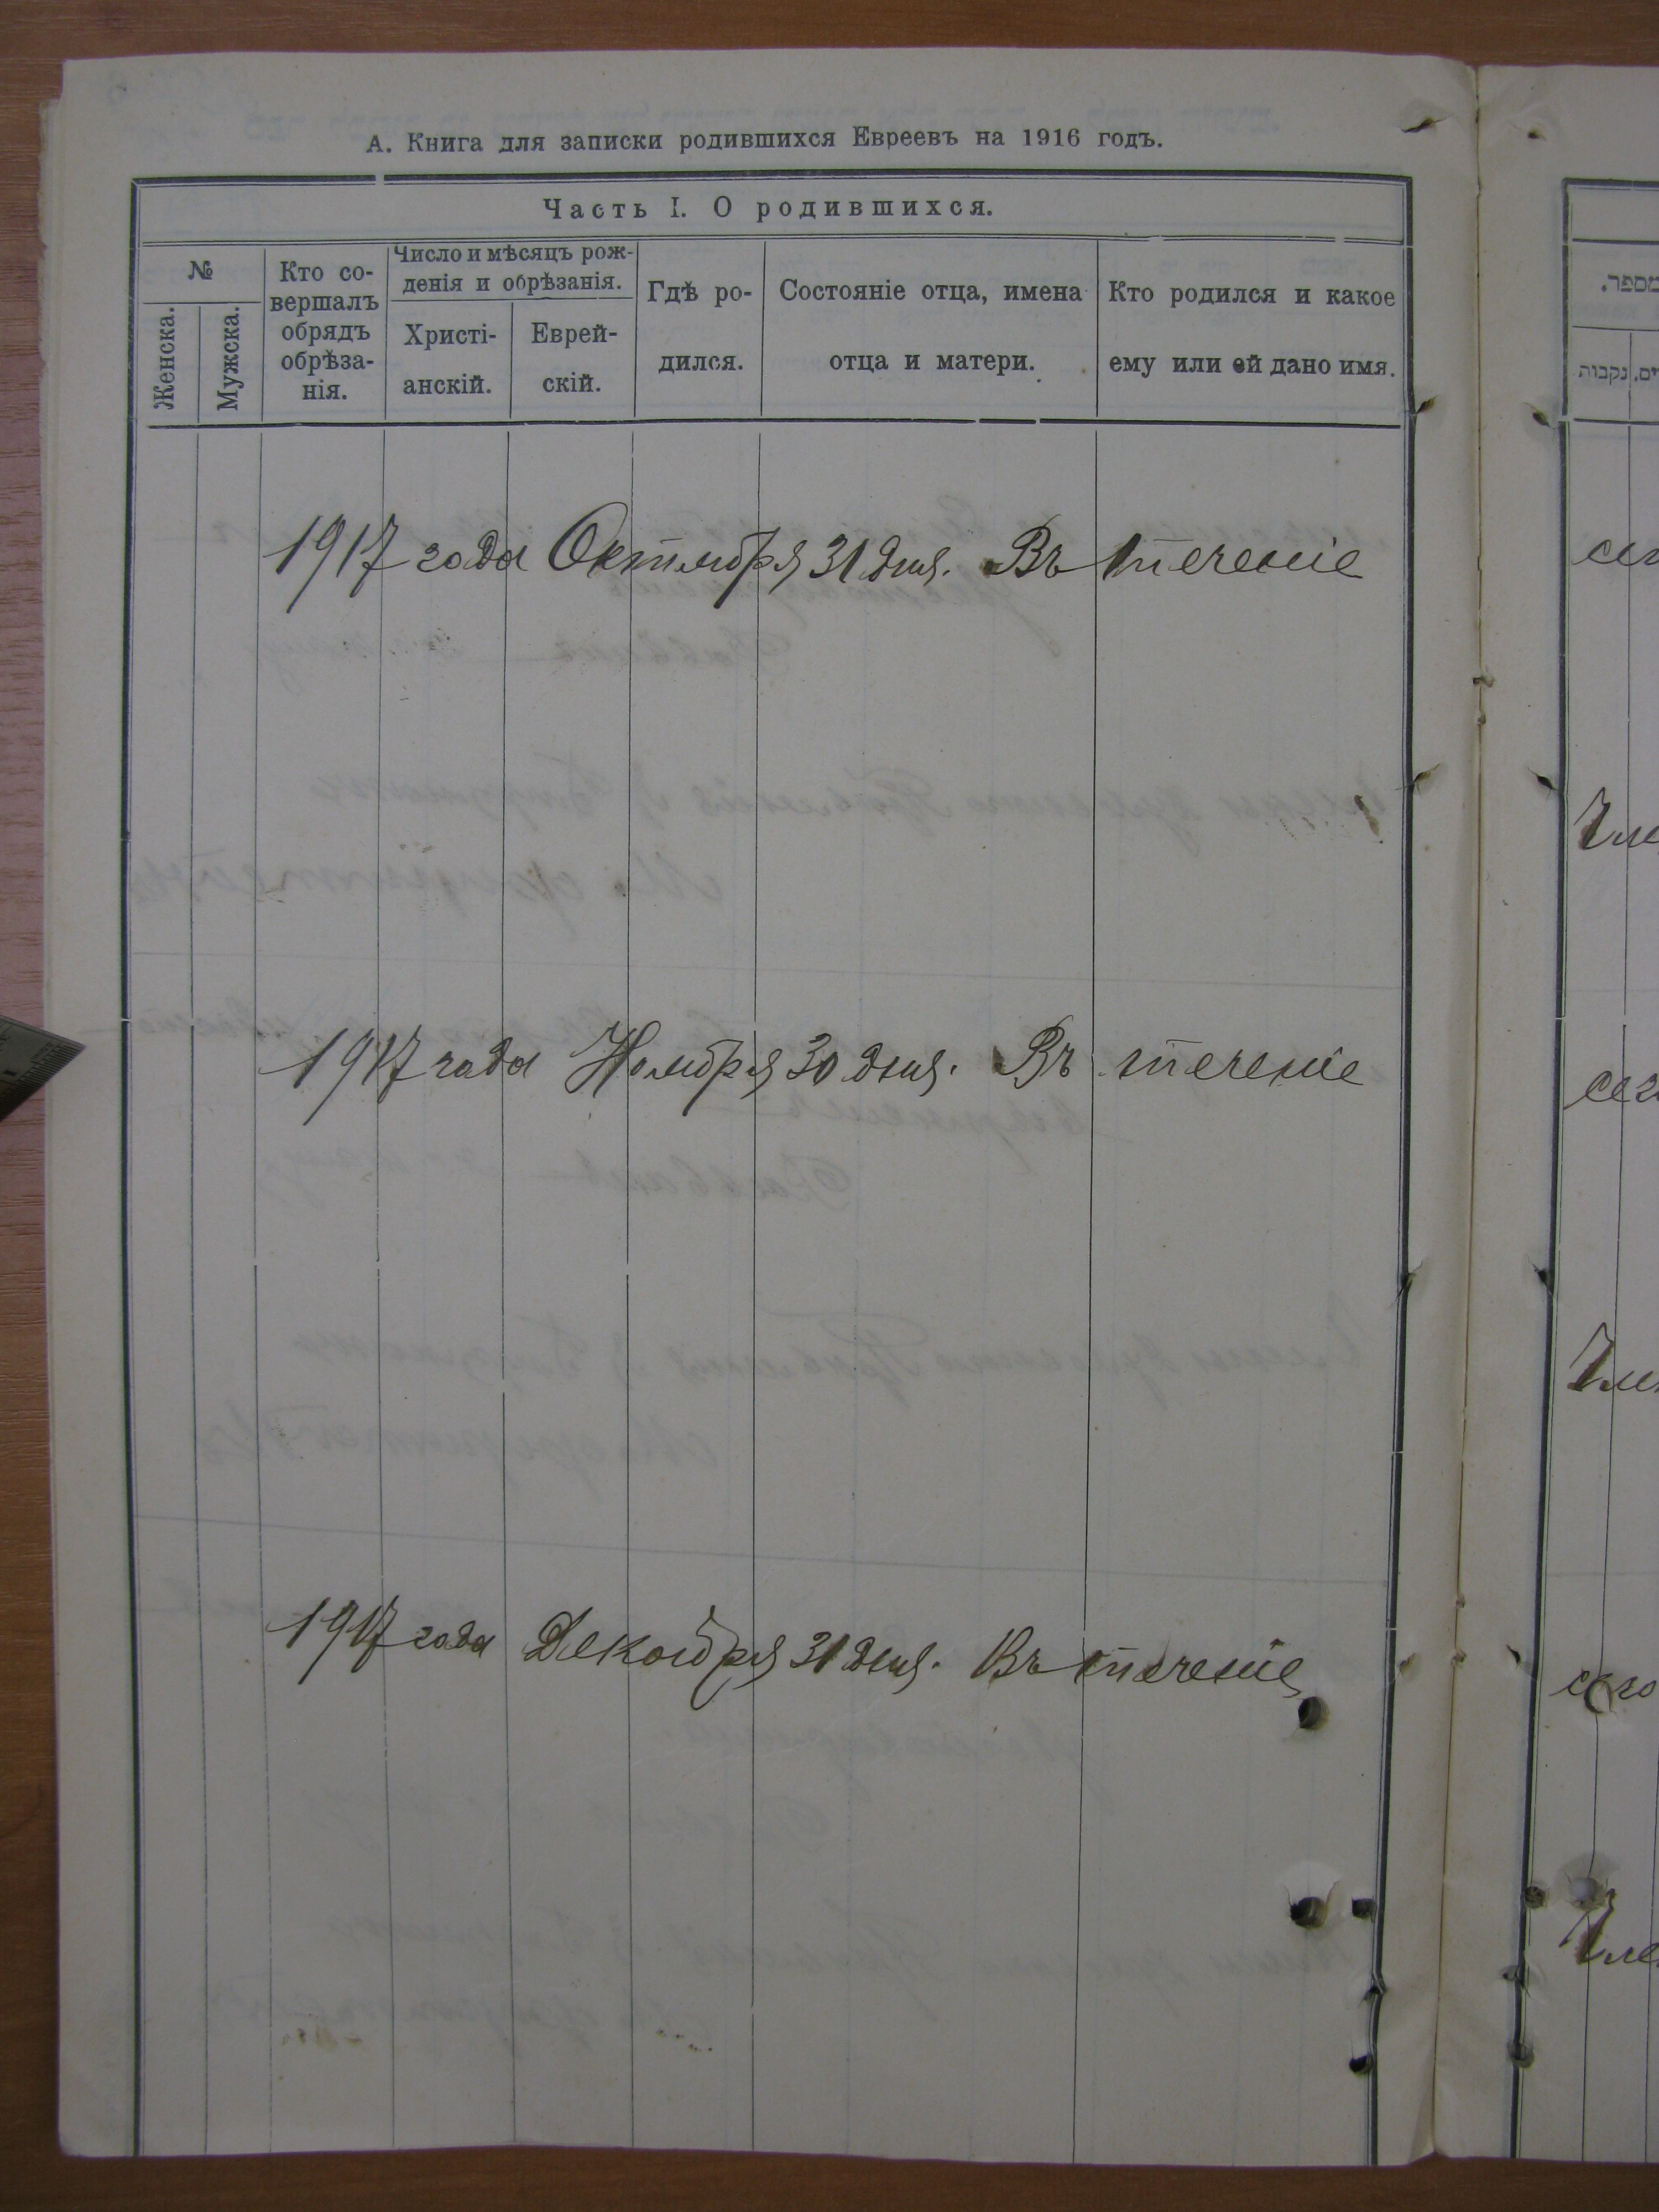 А. Книга для записки родившихся Евреевъ на 1916 годъ.
Часть I. О родившихся.
№
Женска.
Мужска.
Кто со-
вершалъ
обрядъ
обрѣза-
нія.
Число и мѣсяцъ рож-
денія и обрѣзанія.
Христі-
анскій.
Еврей-
скій.
Гдѣ ро-
дился.
Состояніе отца, имена
отца и матери.
Кто родился и какое
ему или ей дано имя.
1917 года Октября 31 дня. Въ теченіе
1917 года Ноября 30 дня. Въ теченіе
1917 года Декабря 31 дня. Въ теченіе
מספר.
נקבות
сего